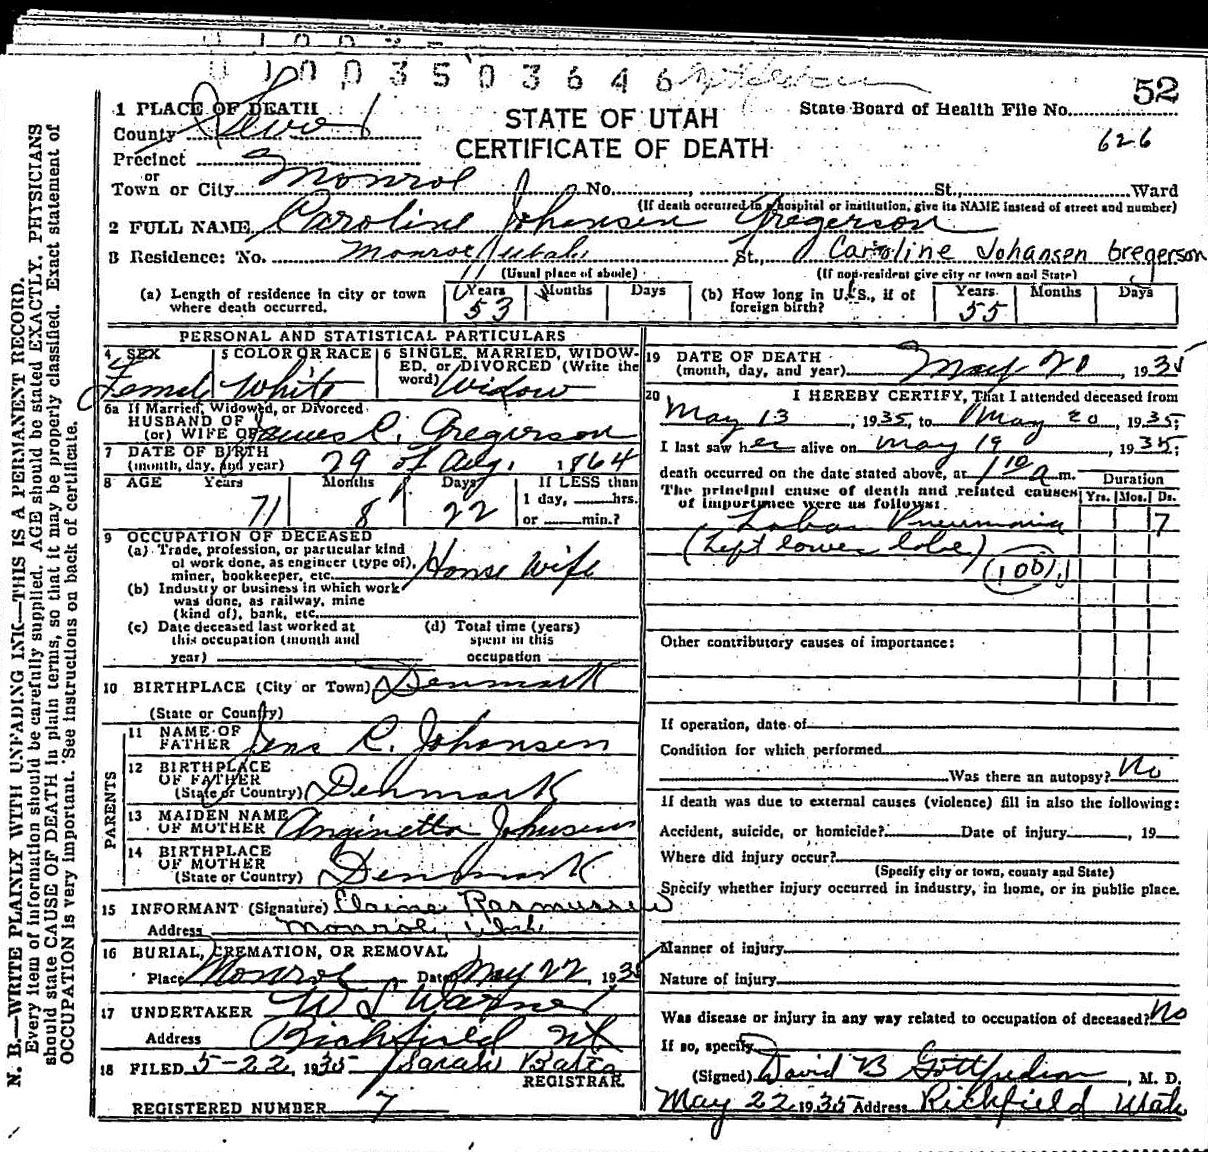 0 1 0 0 3 5 0 3 6 4 6
52
State Board of Health File No.
626
STATE OF UTAH
CERTIFICATE OF DEATH
1 PLACE OF DEATH
County Sevier
Precinct
or
Town or City Monroe No. , St., Ward
(If death occurred in a hospital or institution, give its NAME instead of street and number)
2 FULL NAME Caroline Johansen Gregerson
3 Residence: No. Monroe Utah St., Caroline Johansen Gregerson
(Usual place of abode) (If non-resident give city or town and State)
(a) Length of residence in city or town where death occurred. Years 53 Months Days (b) How long in U. S., if of foreign birth? Years 55 Months Days
PERSONAL AND STATISTICAL PARTICULARS
4 SEX Female
5 COLOR OR RACE White
6 SINGLE, MARRIED, WIDOWED, or DIVORCED (Write the word) Widow
6a If Married, Widowed, or Divorced
HUSBAND OF
(or) WIFE OF James C. Gregerson
7 DATE OF BIRTH
(month, day, and year) 29 of Aug. 1864
8 AGE Years Months Days If LESS than
71 8 22 1 day, hrs.
or min.?
9 OCCUPATION OF DECEASED
(a) Trade, profession, or particular kind
of work done, as engineer (type of),
miner, bookkeeper, etc. House Wife
(b) Industry or business in which work
was done, as railway, mine
(kind of), bank, etc.
(c) Date deceased last worked at
this occupation (month and
year)
(d) Total time (years)
spent in this
occupation
10 BIRTHPLACE (City or Town) Denmark
(State or County)
PARENTS
11 NAME OF
FATHER Jens C. Johansen
12 BIRTHPLACE
OF FATHER
(State or Country) Denmark
13 MAIDEN NAME
OF MOTHER
14 BIRTHPLACE
OF MOTHER
(State or Country) Denmark
15 INFORMANT (Signature) Elaine Rasmussen
Address Monroe, Utah
16 BURIAL, CREMATION, OR REMOVAL
Place Monroe Date May 22, 1935
17 UNDERTAKER W L Warner
Address Richfield Ut
18 FILED 5-22, 1935 Sarah
REGISTRAR.
REGISTERED NUMBER 7
19 DATE OF DEATH
(month, day, and year) May 20, 1935
20 I HEREBY CERTIFY, That I attended deceased from
May 13, 1935, to May 20, 1935;
I last saw her alive on May 19, 1935;
death occurred on the date stated above, at 1 10 a m.
The principal cause of death and related causes
of importance were as follows:
Duration
Yrs. Mos. Ds.
Lobar Pneumonia 7
(Left lower lobe)
Other contributory causes of importance:
If operation, date of
Condition for which performed
Was there an autopsy? No
If death was due to external causes (violence) fill in also the following:
Accident, suicide, or homicide? Date of injury , 19
Where did injury occur?
(Specify city or town, county and State)
Specify whether injury occurred in industry, in home, or in public place.
Manner of injury
Nature of injury
Was disease or injury in any way related to occupation of deceased? No
If so, specify
(Signed) David B Gottfredson, M. D.
May 22 1935 Address Richfield Utah
N. B.—WRITE PLAINLY WITH UNFADING INK—THIS IS A PERMANENT RECORD.
Every item of information should be carefully supplied. AGE should be stated EXACTLY. PHYSICIANS
should state CAUSE OF DEATH in plain terms, so that it may be properly classified. Exact statement of
OCCUPATION is very important. See instructions on back of certificate.